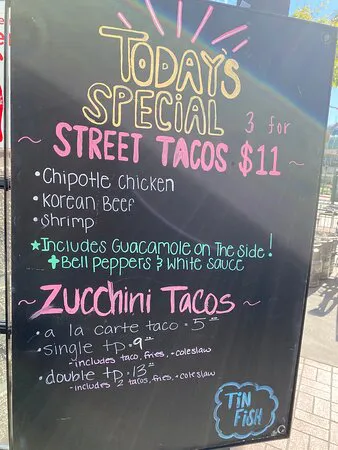 TODAY'S
SPECIAL
3 for
~ STREET TACOS $11 ~
• Chipotle Chicken
• Korean Beef
• Shrimp
★Includes Guacamole on The Side!
+ Bell Peppers & White Sauce
~ Zucchini Tacos ~
• a la carte taco • 5
• single tp • 9
- includes taco, fries, + coleslaw
• double tp • 13
- includes 2 tacos, fries, + coleslaw
TIN
FISH